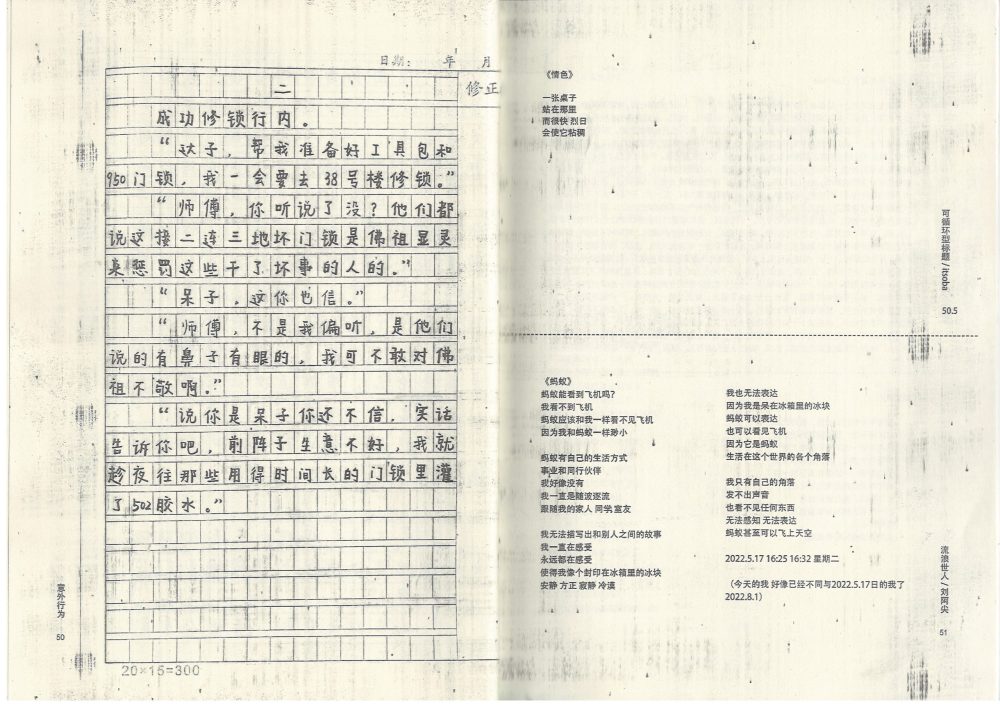 日期： 年 月
修正
二
成功修锁行内。
“达子，帮我准备好工具包和
950门锁，我一会要去38号楼修锁。”
“师傅，你听说了没？他们都
说这接二连三地坏门锁是佛祖显灵
来惩罚这些干了坏事的人的。”
“呆子，这你也信。”
“师傅，不是我偏听，是他们
说的有鼻子有眼的，我可不敢对佛
祖不敬啊。”
“说你是呆子你还不信，实话
告诉你吧，前阵子生意不好，我就
趁夜往那些用得时间长的门锁里灌
了502胶水。”
20×15=300
意外行为
50
《情色》
一张桌子
站在那里
而很快 烈日
会使它粘稠
可循环型标题 / itsoba
50.5
《蚂蚁》
蚂蚁能看到飞机吗？
我看不到飞机
蚂蚁应该和我一样看不见飞机
因为我和蚂蚁一样渺小
蚂蚁有自己的生活方式
事业和同行伙伴
我好像没有
我一直是随波逐流
跟随我的家人 同学 室友
我无法描写出和别人之间的故事
我一直在感受
永远都在感受
使得我像个封印在冰箱里的冰块
安静 方正 寂静 冷漠
我也无法表达
因为我是呆在冰箱里的冰块
蚂蚁可以表达
也可以看见飞机
因为它是蚂蚁
生活在这个世界的各个角落
我只有自己的角落
发不出声音
也看不见任何东西
无法感知 无法表达
蚂蚁甚至可以飞上天空
2022.5.17 16:25 16:32 星期二
（今天的我 好像已经不同与2022.5.17日的我了
2022.8.1）
流浪世人 / 刘阿尖
51